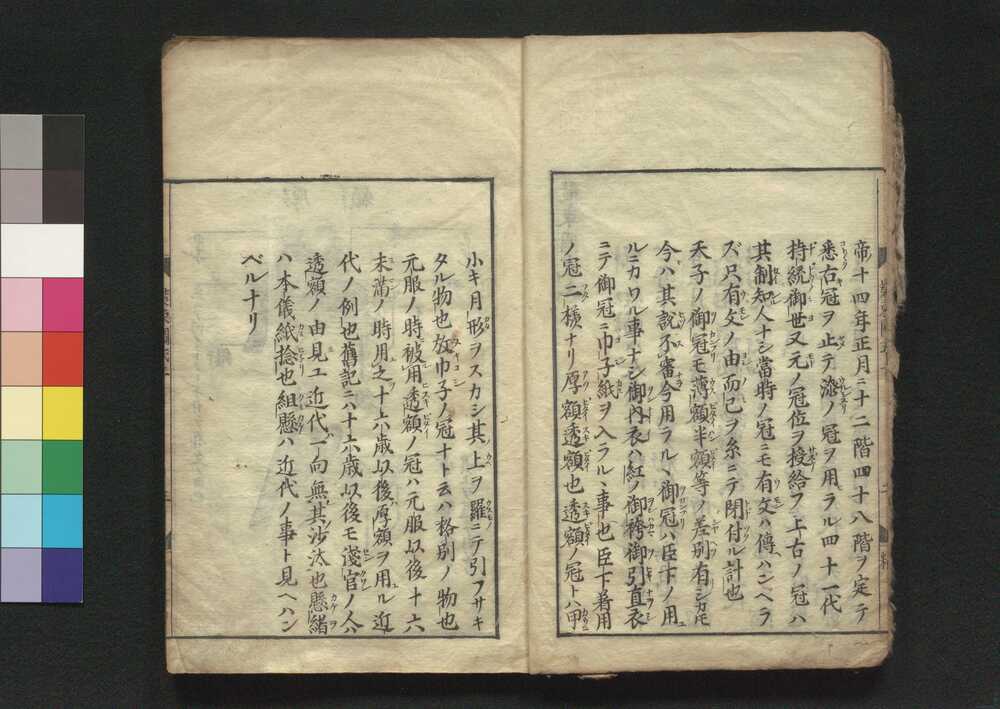 帝十四年正月ニ十二階四十八階ヲ定テ
悉古冠ヲ止テ漆ノ冠ヲ用ラル四十一代
持統御世又元ノ冠位ヲ授給フ上古ノ冠ハ
其制知人ナシ當時ノ冠ニモ有文ハ傳ハンヘラ
ズ只有文ノ由而已ヲ糸ニテ閉付ル計也
天子ノ御冠モ薄額半額等ノ差別有シカモ
今ハ其説不審今用ラルヽ御冠ハ臣下ノ用
ルニカワル事ナシ御内衣ハ紅ノ御袴御引直衣
ニテ御冠ニ巾子紙ヲ入ラルヽ事也臣下着用
ノ冠二様ナリ厚額透額也透額ノ冠トハ甲
小キ月形ヲスカシ其上ヲ羅ニテ引フサキ
タル物也放巾子ノ冠ナト云ハ格別ノ物也
元服ノ時被用透額ノ冠ハ元服以後十六
未滿ノ時用之十六歳以後厚額ヲ用ル近
代ノ例也舊記ニハ十六歳以後モ淺官ノ人ハ
透額ノ由見ユ近代一向無其沙汰也懸緒
ハ本儀紙捻也組懸ハ近代ノ事ト見ヘハン
ベルナリ